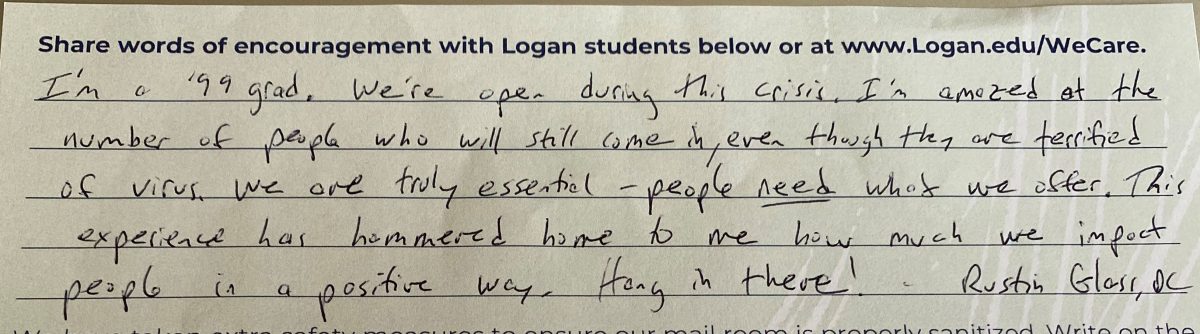 Share words of encouragement with Logan students below or at www.Logan.edu/WeCare.
I'm a '99 grad. We're open during this crisis. I'm amazed at the
number of people who will still come in, even though they are terrified
of virus. We are truly essential - people need what we offer. This
experience has hammered home to me how much we impact
people in a positive way. Hang in there! - Rustin Glass, DC
extra safety measures to ensure our mail room is properly sanitized. Write on the